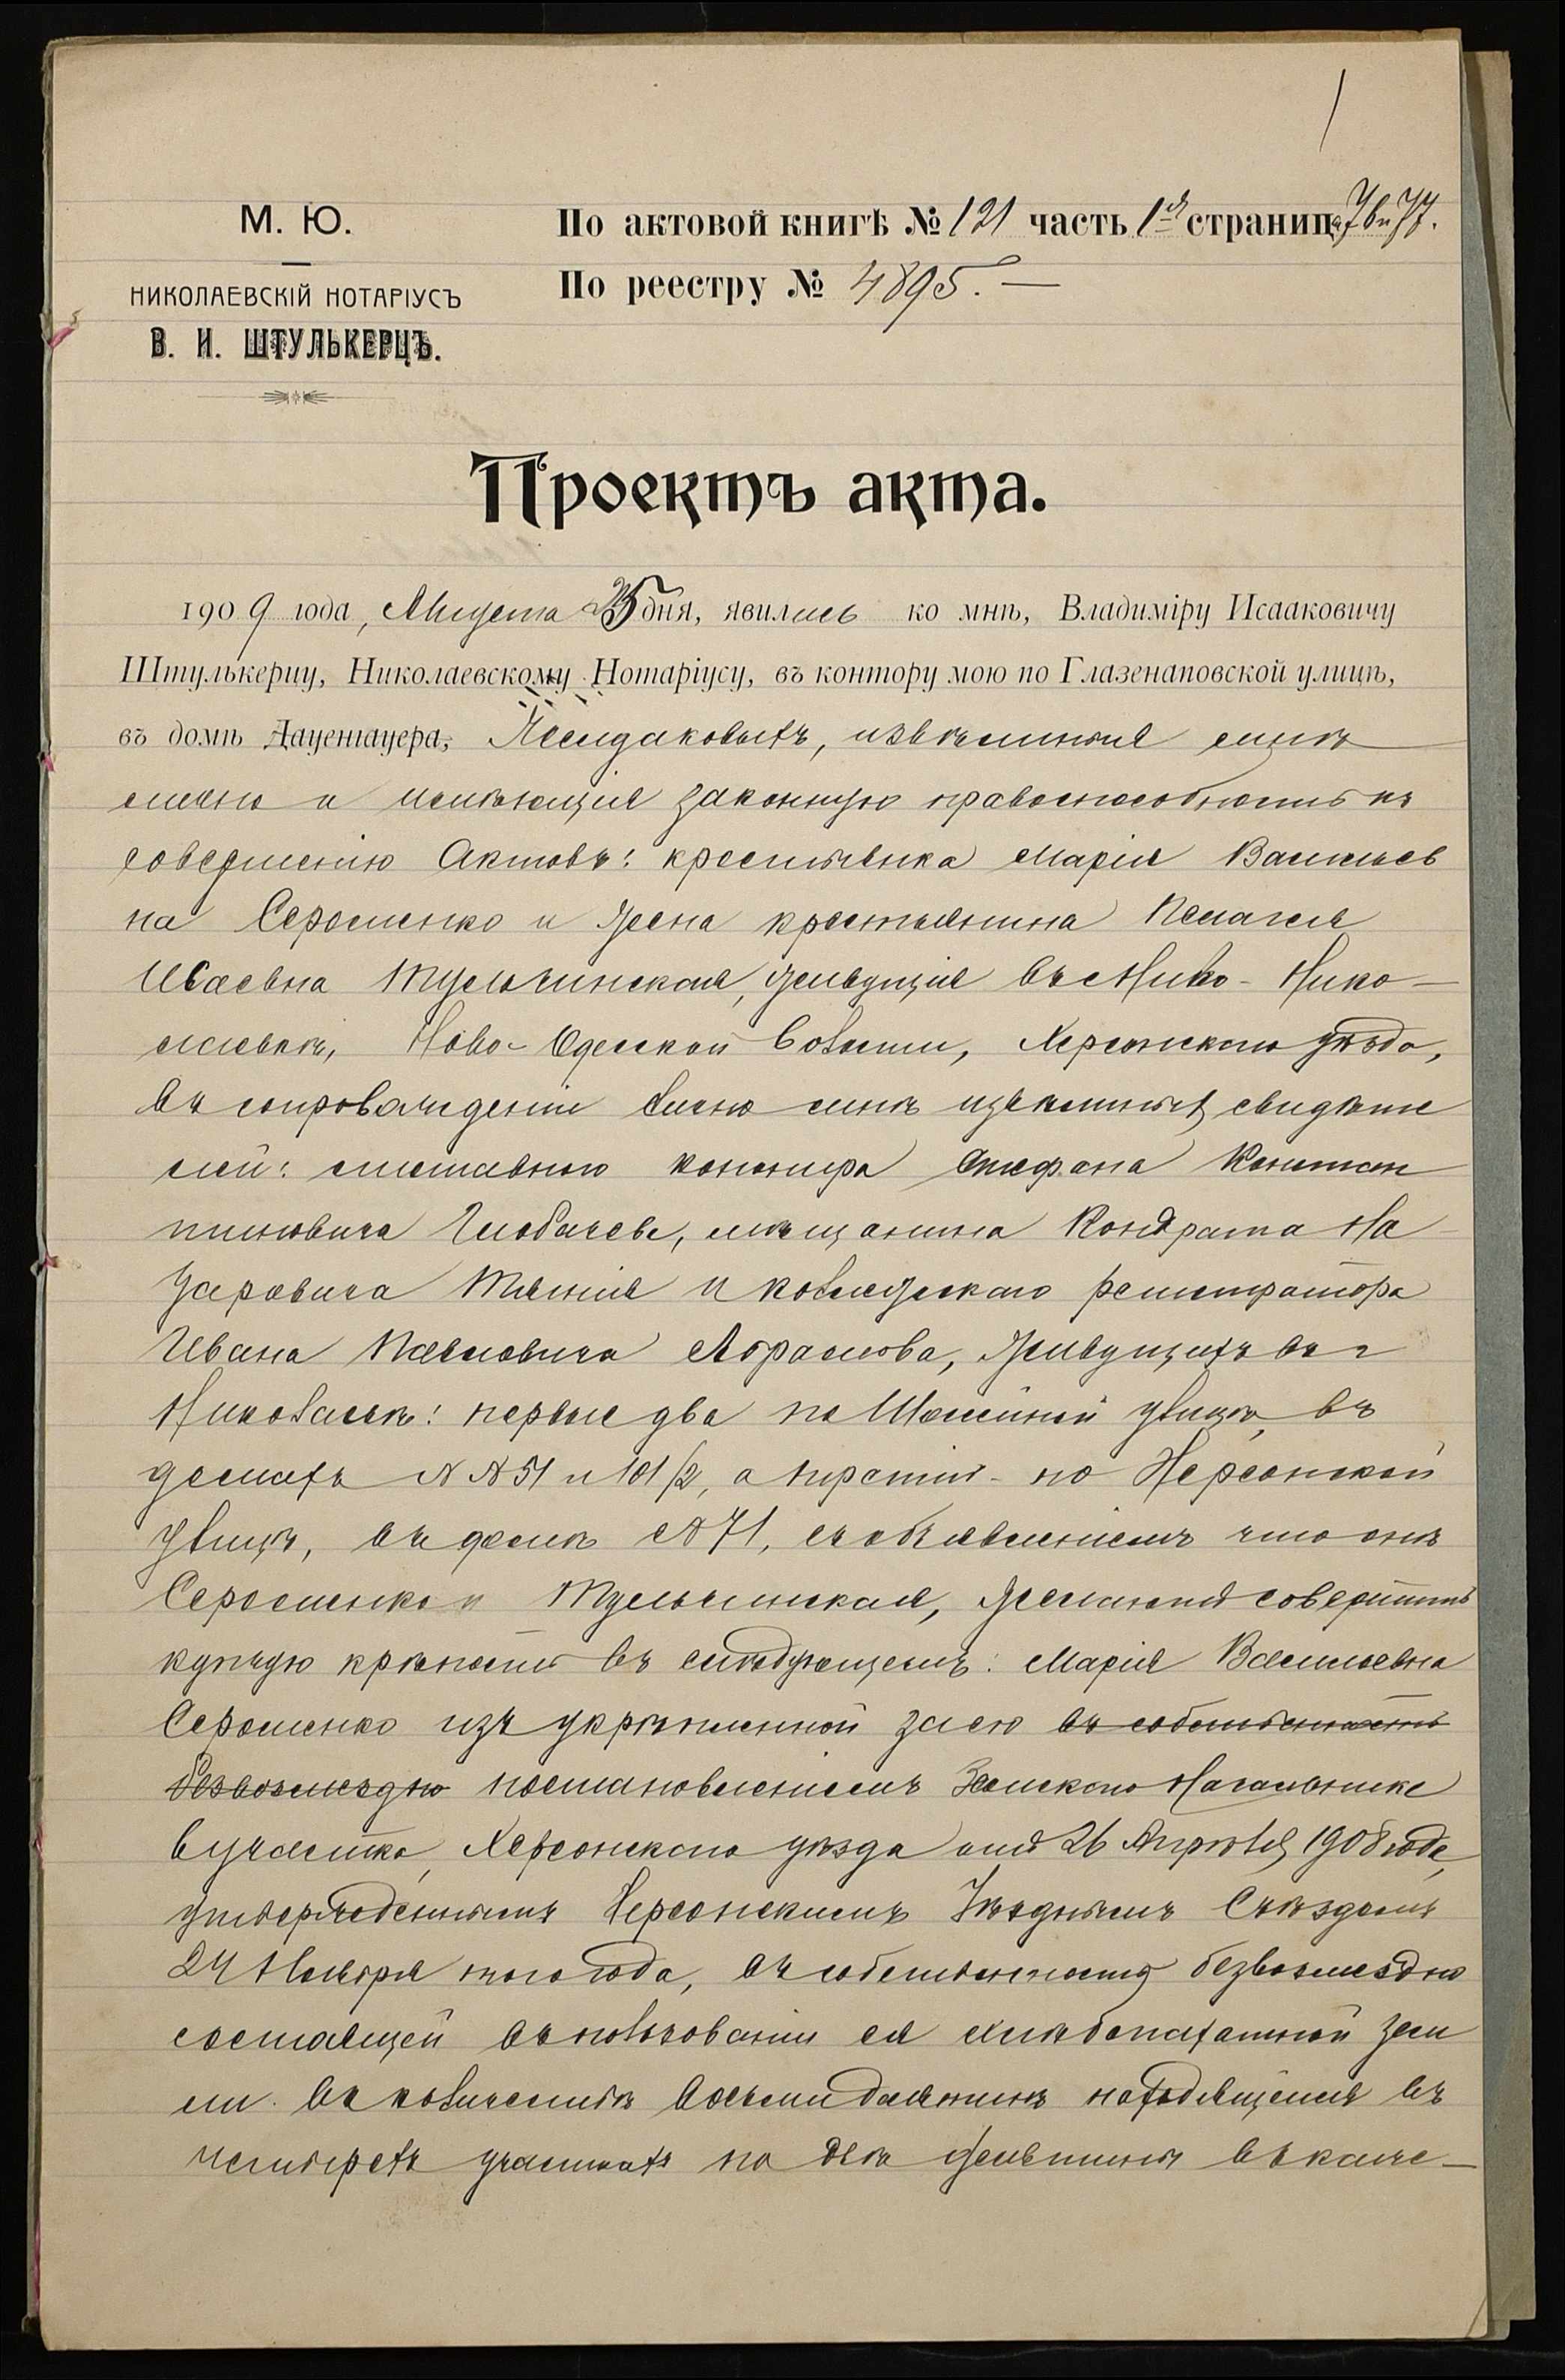 М. Ю.
НИКОЛАЕВСКІЙ НОТАРІУСЪ
В. И. ШТУЛЬКЕРЦЪ.
По актовой книгѣ № 121 часть 1я страниц
По реестру № 4895. —
Проектъ акта.
1909 года, Августа 25 дня, явились ко мнѣ, Владиміру Исааковичу
Штулькерцу, Николаевскому Нотаріусу, въ контору мою по Глазенаповской улицѣ,
въ домѣ Дауенгауера, извѣстныя мнѣ
лично и имѣющія законную правоспособность къ
совершенію Актовъ: крестьянка Марія Васильев
на Серошенко и жена крестьянина Пелагея
Исаевна Тульчинская, живущія въ Нико-
лаевкѣ, Ново-Одесской волости, Херсонскаго уѣзда,
въ сопровожденіи лично мнѣ извѣстныхъ свидѣте
лей: отставного Стефана Констан
тиновича мѣщанина Кондрата На
заровича и коллежскаго регистратора
Ивана Павловича Абрамова, живущихъ въ г
Николаевѣ: первые два по улицѣ, въ
домахъ №№ 51 и 101/2, а третій - по Херсонской
улицѣ, въ домѣ №71, съ объявленіемъ что онѣ
Серошенко и Тульчинская, желаютъ совершить
купчую крѣпость въ слѣдующемъ: Марія Васильевна
Серошенко изъ укрѣпленной за ею въ собственность
безвозмездно постановленіемъ Земскаго Начальника
6 участка, Херсонскаго уѣзда отъ 26 Апрѣля 1908 года,
утвержденнымъ Херсонскимъ Уѣзднымъ Съѣздомъ
24 Ноября того года, въ собственность безвозмездно
состоящей въ пользованіи ея хлѣбопахатной зем
ли въ количествѣ восьми десятинъ находящейся въ
четырехъ участкахъ по двѣ десятины въ каж-